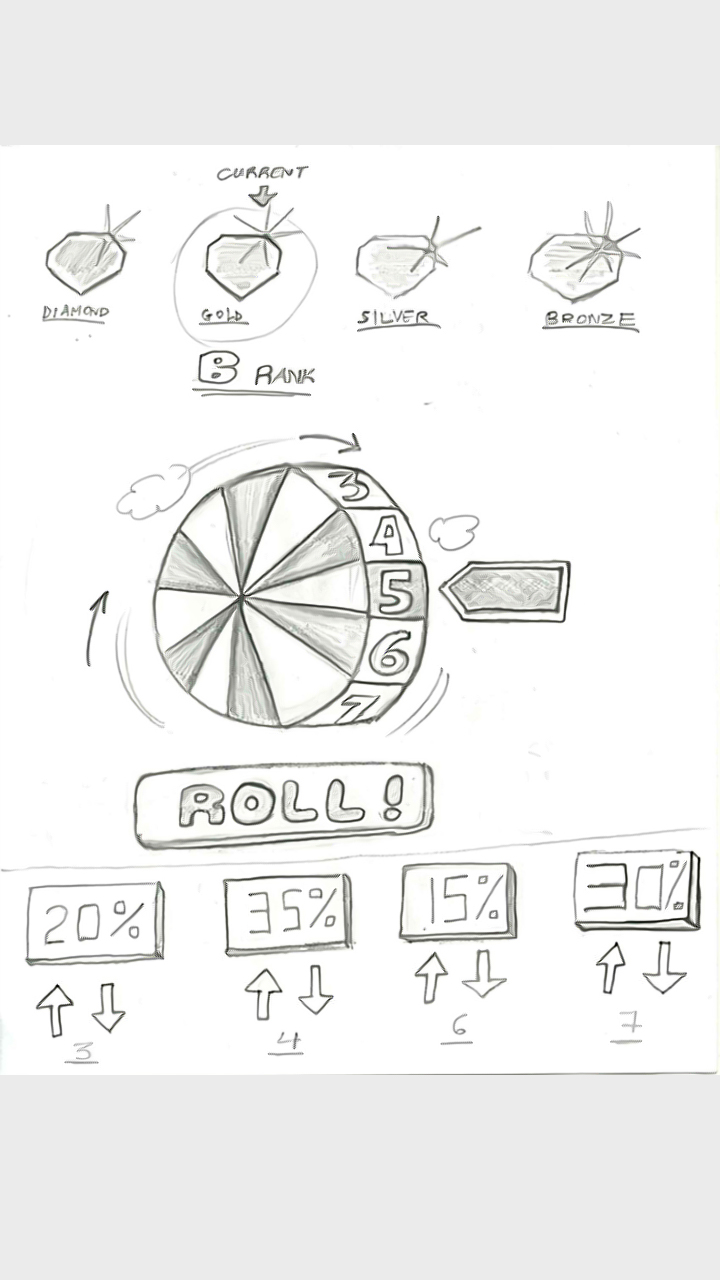 CURRENT
DIAMOND GOLD SILVER BRONZE
B RANK
3
4
5
6
7
ROLL!
20% 35% 15% 30%
3 4 6 7